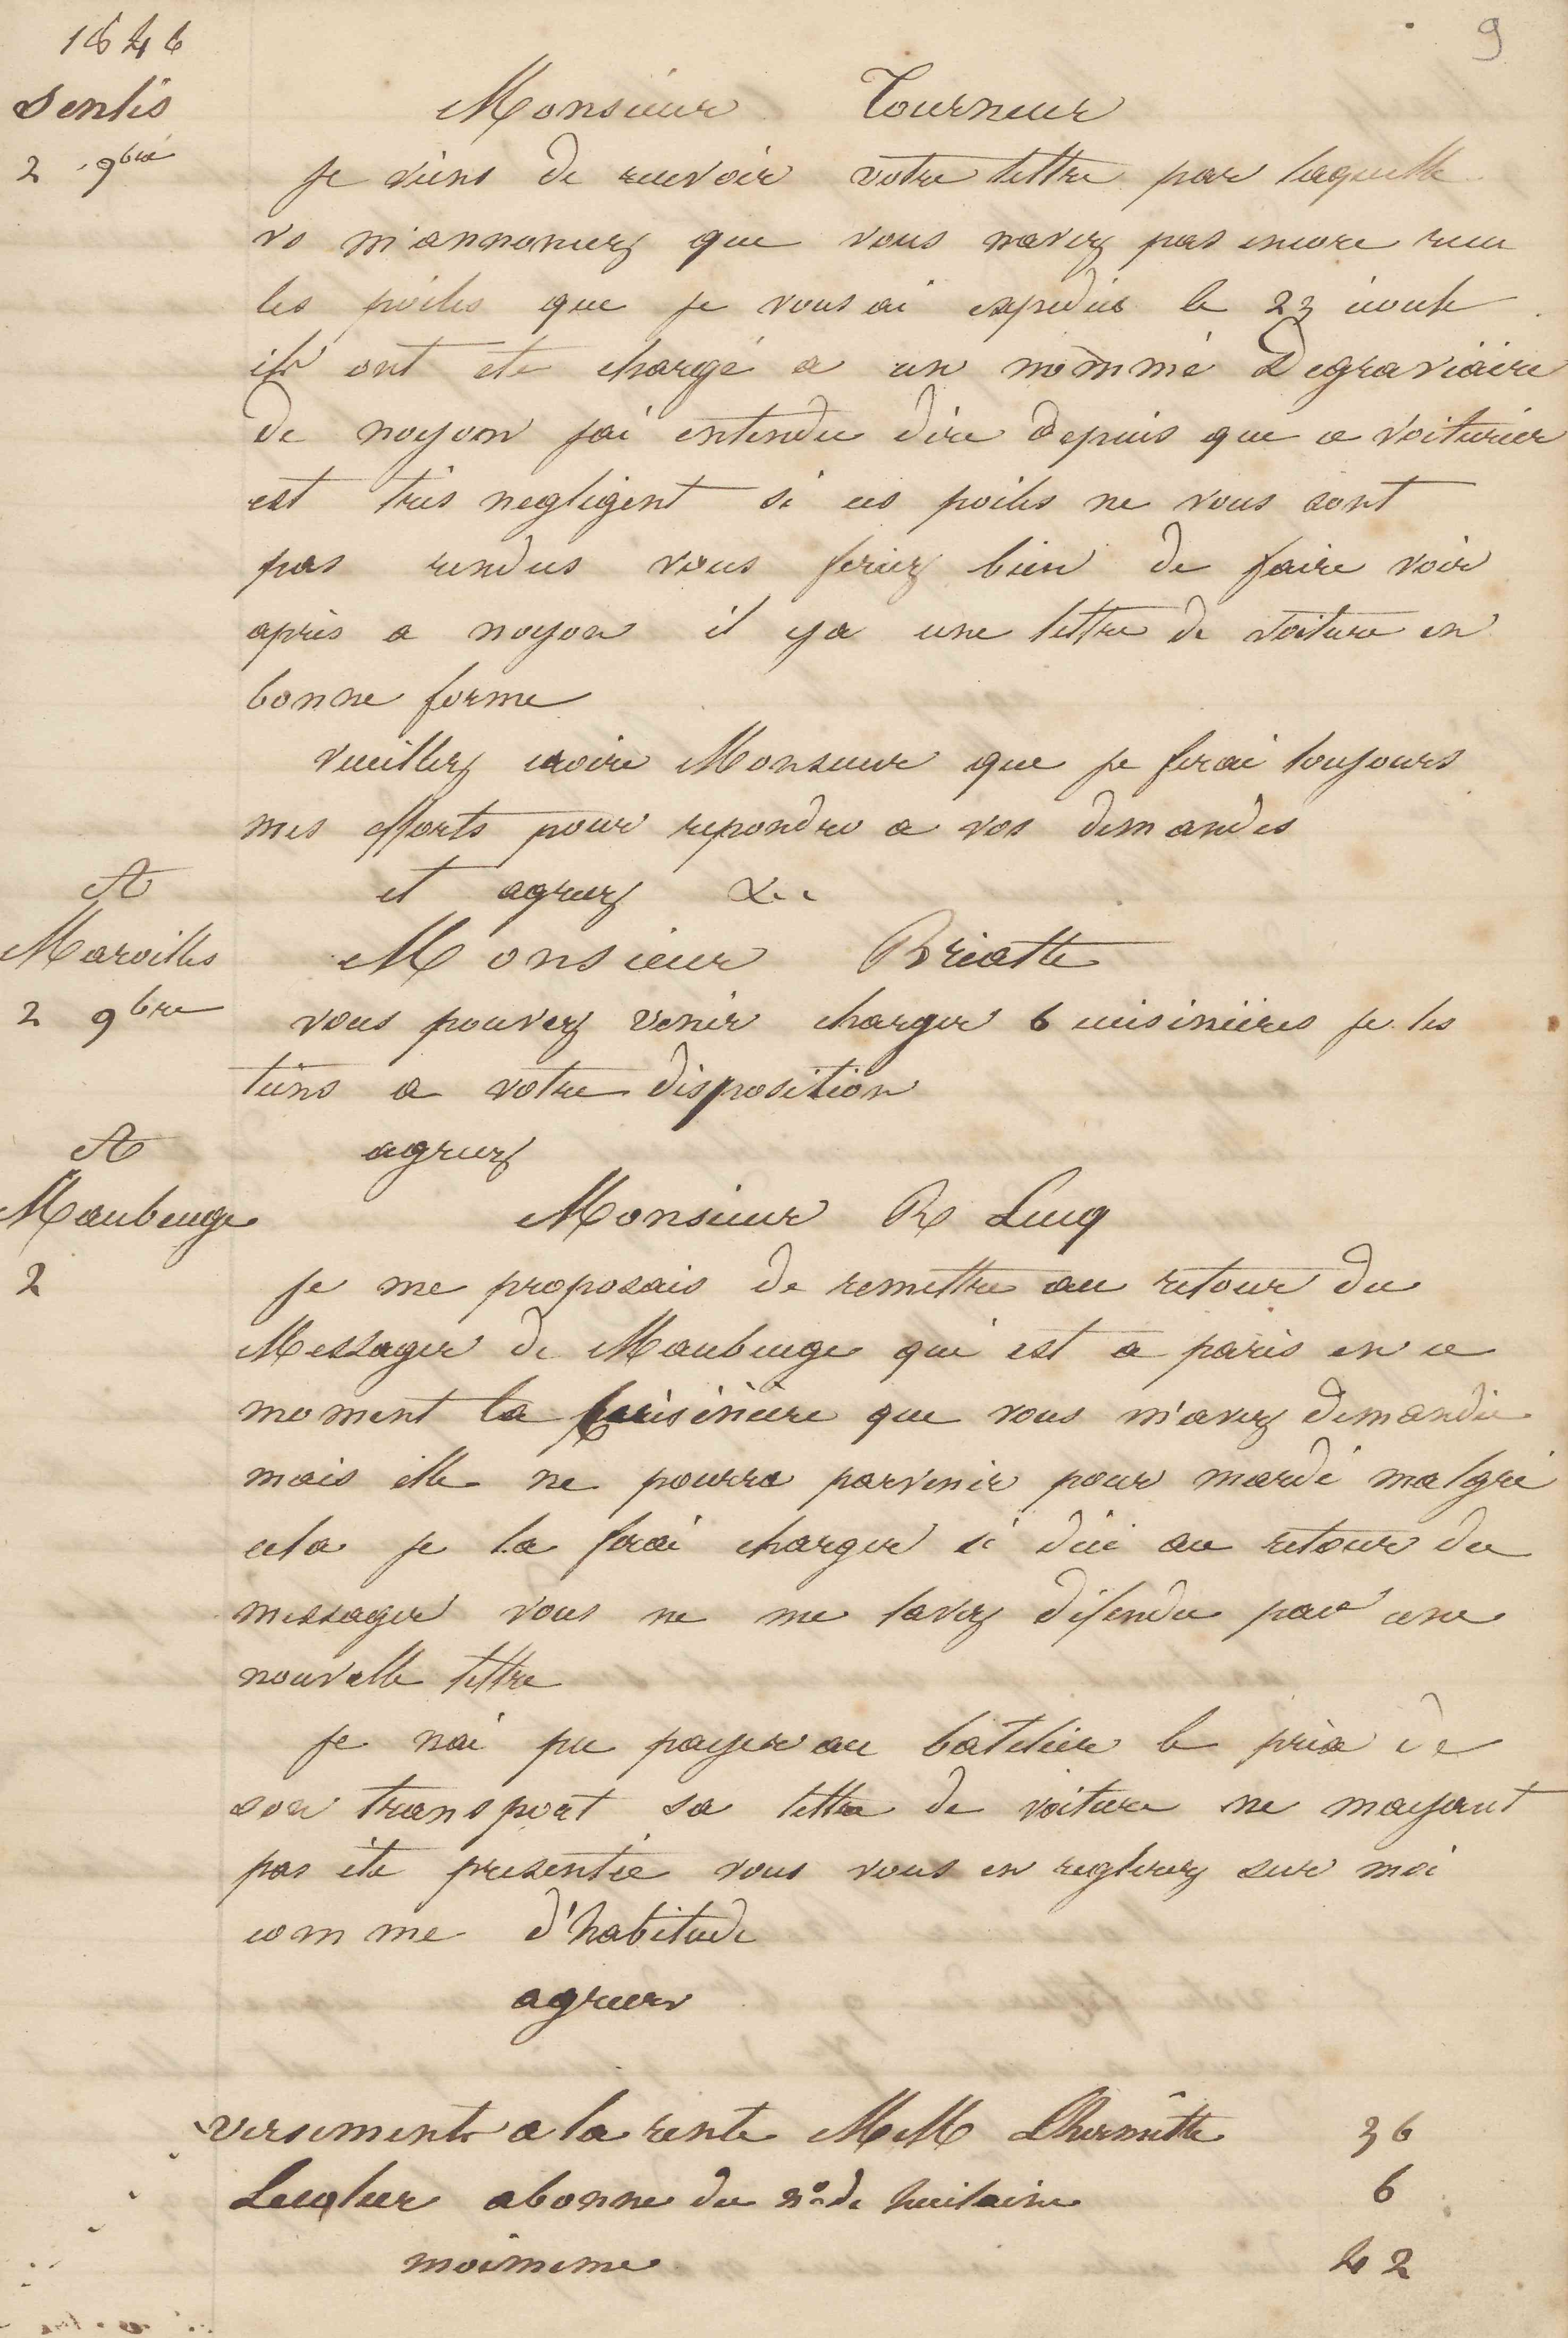 9
1846
Senlis
2 9bre
Monsieur Tourneur
je viens de recevoir votre lettre par laquelle
vs m'annoncez que vous navez pas encore recu
les poiles que je vous ai expediés le 23 aout
ils ont ete chargé a un nommé Degraviaire
de noyon jai entendu dire depuis que ce voiturier
est très negligent si ces poiles ne vous sont
pas rendus vous feriez bien de faire voir
après a noyon il ya une lettre de voiture en
bonne forme
veuillez croire Monsieur que je ferai toujours
mes efforts pour repondre a vos demandes
et agreez &c
A
Maroilles
2 9bre
Monsieur Briatte
vous pouvez venir charger 6 cuisinières je les
tiens a votre disposition
agreez
A
Maubeuge
2
Monsieur R Lucq
je me proposais de remettre au retour du
Messager de Maubeuge qui est a paris en ce
moment la cuisinière que vous m'avez demandée
mais elle ne pourra parvenir pour mardi malgré
cela je la ferai charger si dici au retour du
messager vous ne me lavez défendu par une
nouvelle lettre
je nai pu payer au batelier le prix de
son transport sa lettre de voiture ne mayant
pas été presentée vous vous en reglerez sur moi
comme d'habitude
agreer
versements a la rente MM Lhermitte 36
abonne du no de huitaine 6
moimeme 42